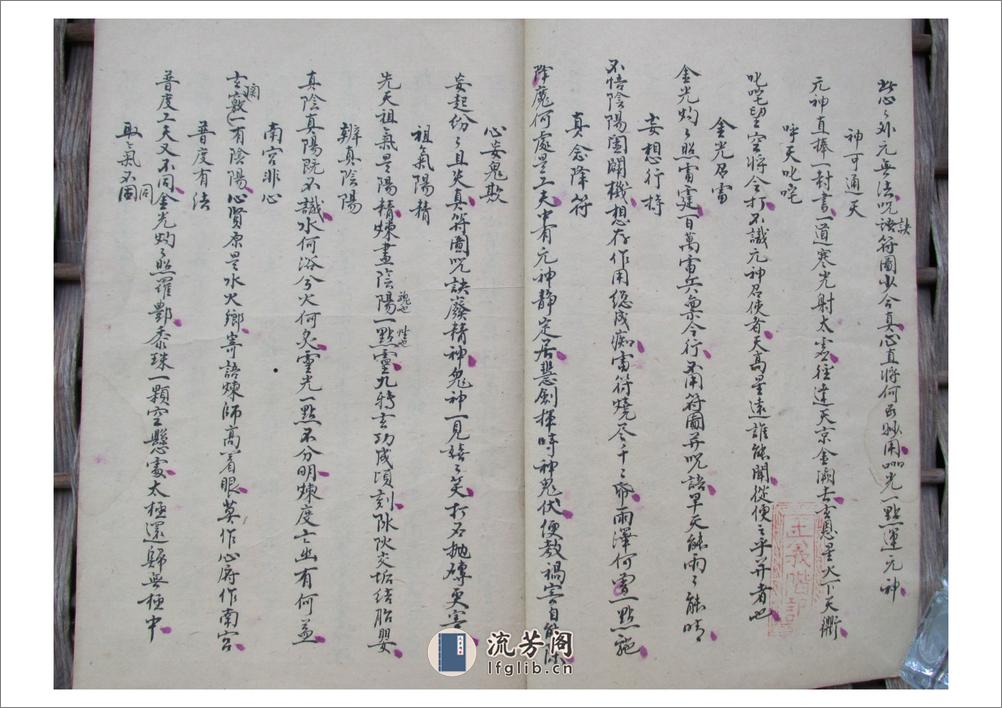 此心之外元無法咒訣語符圖火今真心直將何為妙用咄光一點運元神
神可通天
元神直捧一封書一道寒光射太虛徑達天京金闕去玄恩星火下天衢
呼天叱咤
叱咤望空將令打不識元神召使者天高星遠誰能聞從便之乎并者也
金光召雷
金光灼灼照雷霆百萬雷兵稟令行不用符圖并咒語旱天能雨雨能晴
妄想行持
不悟陰陽闔闢機想存作用總成痴雷符燒尽千千帋雨澤何曾一點施
真念降符
降魔何處是工夫中有元神靜定居慧劍揮時神鬼伏便教禍害自能除
心妄鬼欺
妄起份份且失真符圖咒訣廢精神鬼神一見嘻嘻笑打石拋磚更害
祖氣陽精
先天祖氣是陽精煉盡陰陽一點靈九轉玄功成頃刻
辨真陰陽
真陰真陽既不識水何浴兮火何炙靈光一點不分明煉度亡幽有何益
南宮非心
玄關一竅有陰陽心腎原是水火鄉寄語煉師高著眼莫作心府作南宮
普度有法
普度工夫又不同金光灼灼照羅酆黍珠一顆空懸處太極還歸無極中
取氣不同
流芳阁
lfglib.cn